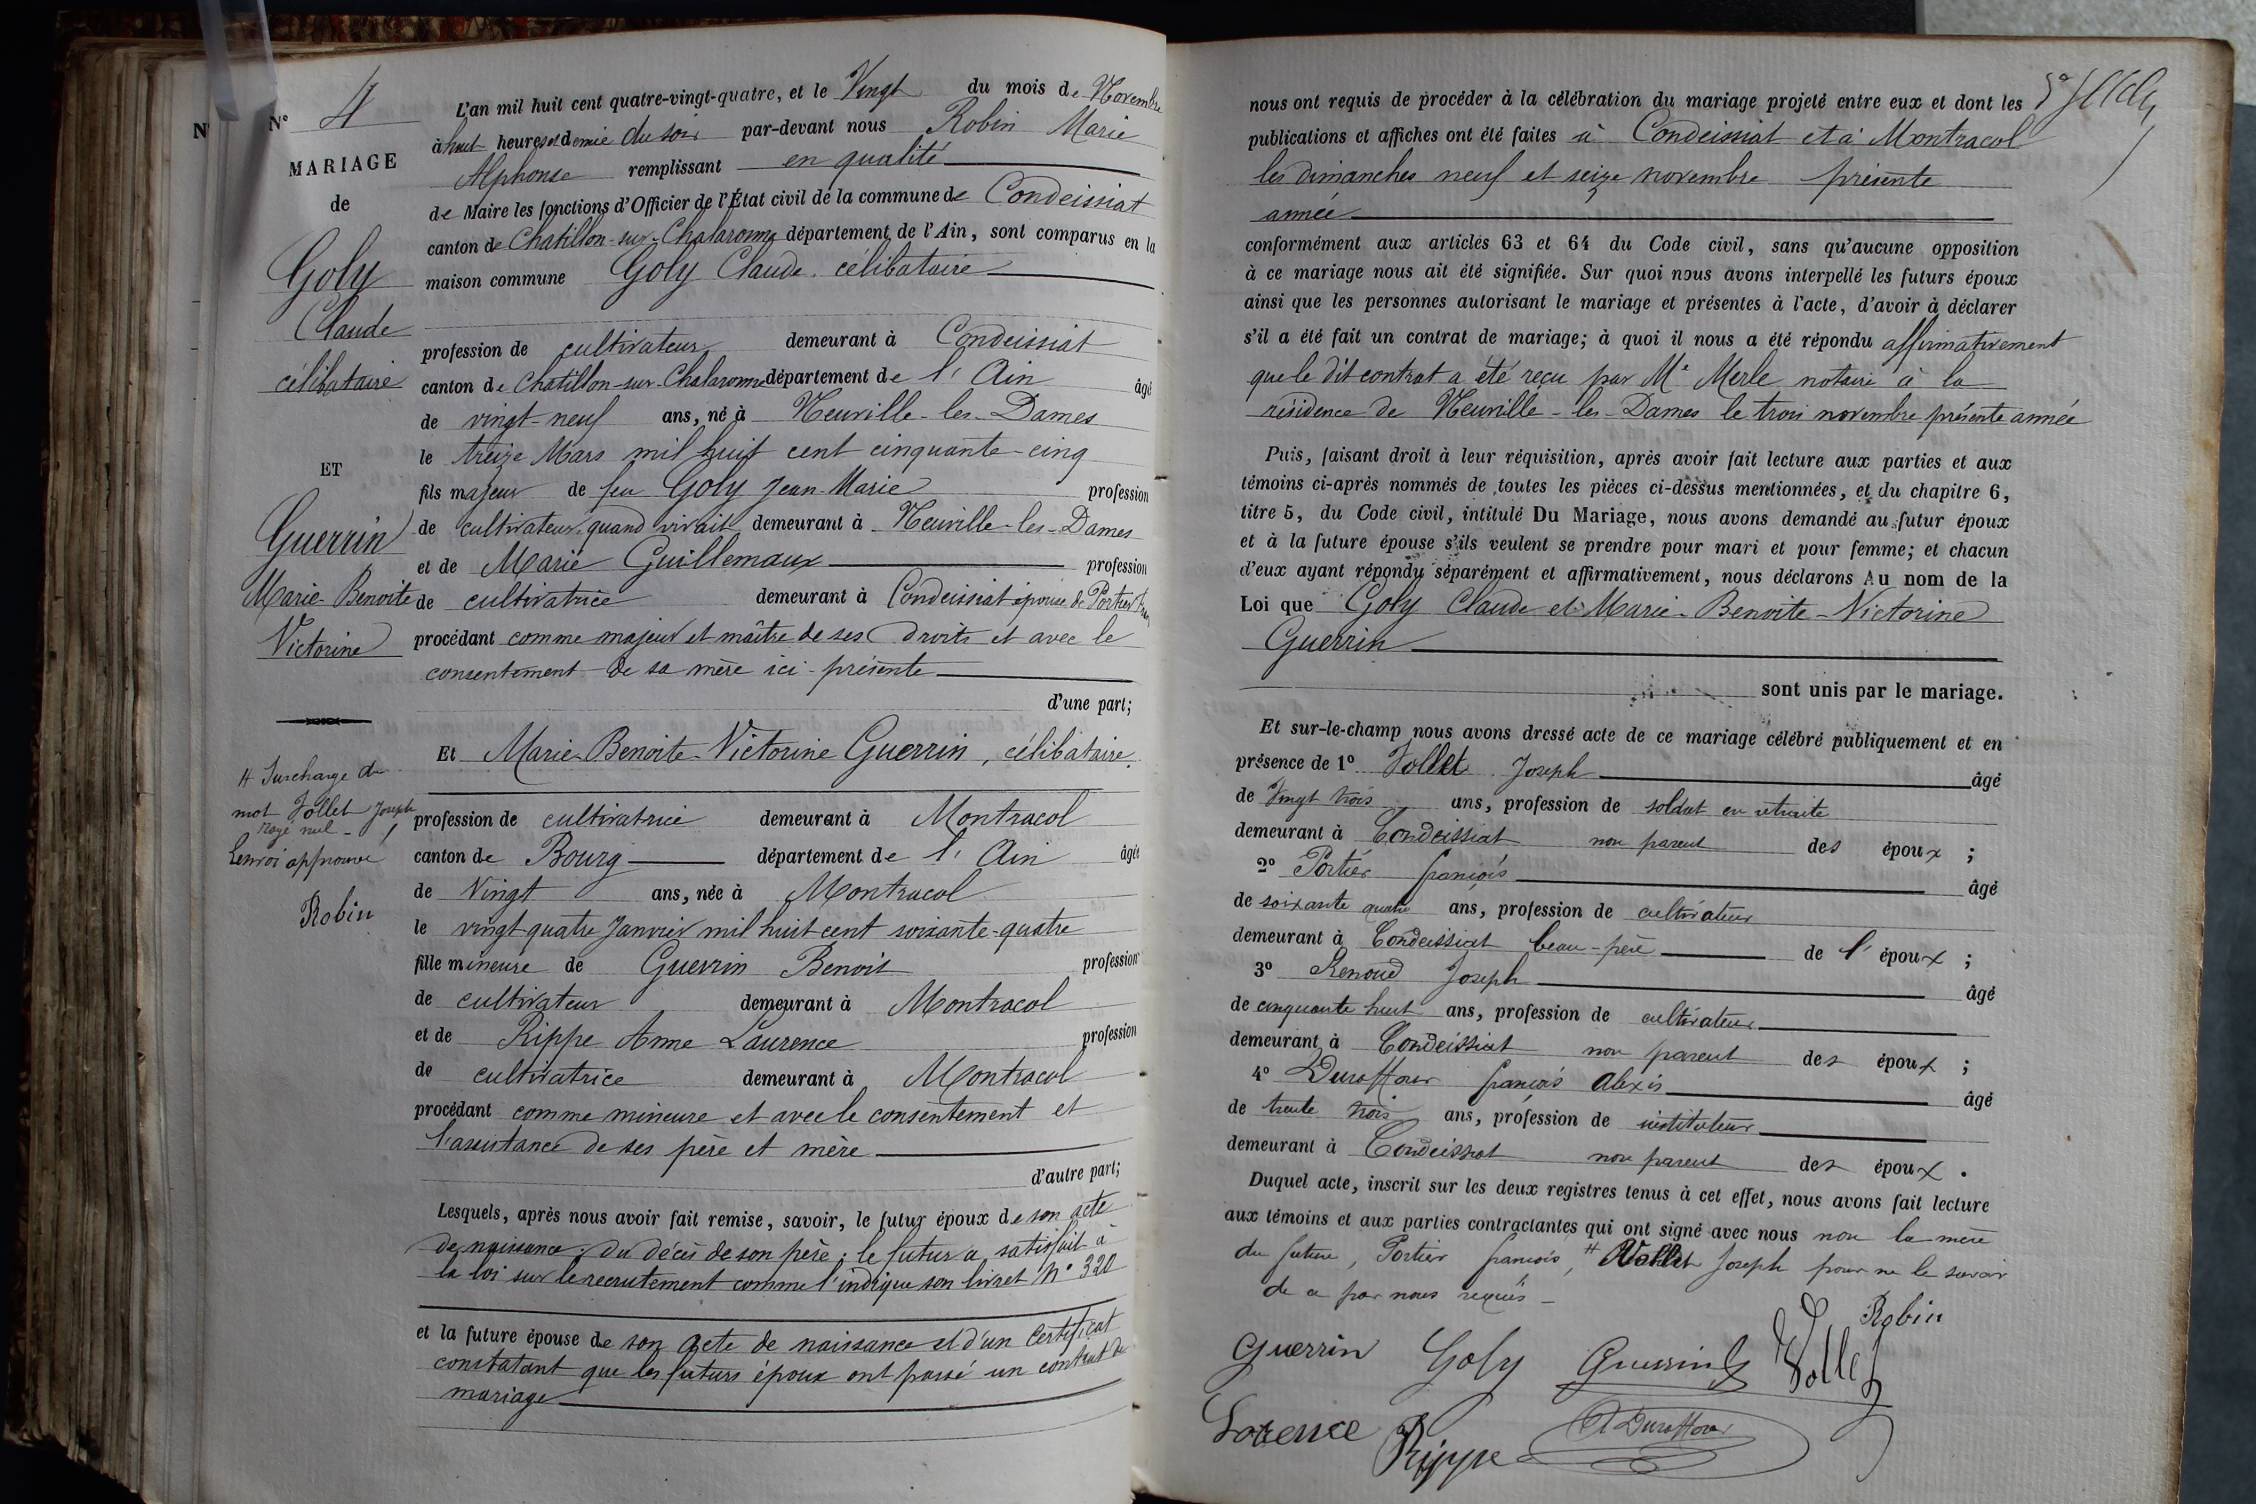 N° 4
MARIAGE
de
Goly
Claude
célibataire
ET
Guerrin
Marie-Benoite
Victorine
# Surcharge du
mot Vollet Joseph
rayé nul
Renvoi approuvé
Robin
L'an mil huit cent quatre-vingt-quatre, et le Vingt du mois de Novembre
à huit heures et demie du soir par-devant nous Robin Marie
Alphonse remplissant en qualité
de Maire les fonctions d'Officier de l'État civil de la commune de Condeissiat
canton de Chatillon-sur-Chalaronne département de l'Ain, sont comparus en la
maison commune Goly Claude célibataire
profession de cultivateur demeurant à Condeissiat
canton de Chatillon-sur-Chalaronne département de l'Ain âgé
de vingt-neuf ans, né à Neuville-les-Dames
le treize Mars mil huit cent cinquante-cinq
fils majeur de feu Goly Jean-Marie profession
de cultivateur quand vivait demeurant à Neuville-les-Dames
et de Marie Guillemaux profession
de cultivatrice demeurant à Condeissiat épouse de Portier
procédant comme majeur et maître de ses droits et avec le
consentement de sa mère ici-présente
d'une part;
Et Marie-Benoite-Victorine Guerrin, célibataire.
profession de cultivatrice demeurant à Montracol
canton de Bourg département de l'Ain âgée
de Vingt ans, née à Montracol
le vingt quatre Janvier mil huit cent soixante-quatre
fille mineure de Guerrin Benoit profession
de cultivateur demeurant à Montracol
et de Rippe Anne Laurence profession
de cultivatrice demeurant à Montracol
procédant comme mineure et avec le consentement et
l'assistance de ses père et mère
d'autre part;
Lesquels, après nous avoir fait remise, savoir, le futur époux de son acte
de naissance; du décès de son père; le futur a satisfait à
la loi sur le recrutement comme l'indique son livret N° 320
et la future épouse de son acte de naissance et d'un certificat
constatant que les futurs époux ont passé un contrat de
mariage
nous ont requis de procéder à la célébration du mariage projeté entre eux et dont les
publications et affiches ont été faites à Condeissiat et à Montracol
les dimanches neuf et seize novembre présente
année
conformément aux articles 63 et 64 du Code civil, sans qu'aucune opposition
à ce mariage nous ait été signifiée. Sur quoi nous avons interpellé les futurs époux
ainsi que les personnes autorisant le mariage et présentes à l'acte, d'avoir à déclarer
s'il a été fait un contrat de mariage; à quoi il nous a été répondu affirmativement
que le dit contrat a été reçu par Me Merle notaire à la
résidence de Neuville-les-Dames le trois novembre présente année
Puis, faisant droit à leur réquisition, après avoir fait lecture aux parties et aux
témoins ci-après nommés de toutes les pièces ci-dessus mentionnées, et du chapitre 6,
titre 5, du Code civil, intitulé Du Mariage, nous avons demandé au futur époux
et à la future épouse s'ils veulent se prendre pour mari et pour femme; et chacun
d'eux ayant répondu séparément et affirmativement, nous déclarons Au nom de la
Loi que Goly Claude et Marie-Benoite-Victorine
Guerrin
sont unis par le mariage.
Et sur-le-champ nous avons dressé acte de ce mariage célébré publiquement et en
présence de 1° Vollet Joseph âgé
de Vingt trois ans, profession de soldat en retraite
demeurant à Condeissiat non parent des époux ;
2° Portier françois âgé
de soixante quatre ans, profession de cultivateur
demeurant à Condeissiat beau-père de l'époux ;
3° Renoud Joseph âgé
de cinquante huit ans, profession de cultivateur
demeurant à Condeissiat non parent des époux ;
4° Duraffour françois Alexis âgé
de trente trois ans, profession de instituteur
demeurant à Condeissiat non parent des époux.
Duquel acte, inscrit sur les deux registres tenus à cet effet, nous avons fait lecture
aux témoins et aux parties contractantes qui ont signé avec nous non la mère
du futur, Portier françois, # Vollet Joseph pour ne le savoir
de ce par nous requis
Robin
Guerrin Goly Guerrin B Vollet
Lorence Rippe A Duraffour